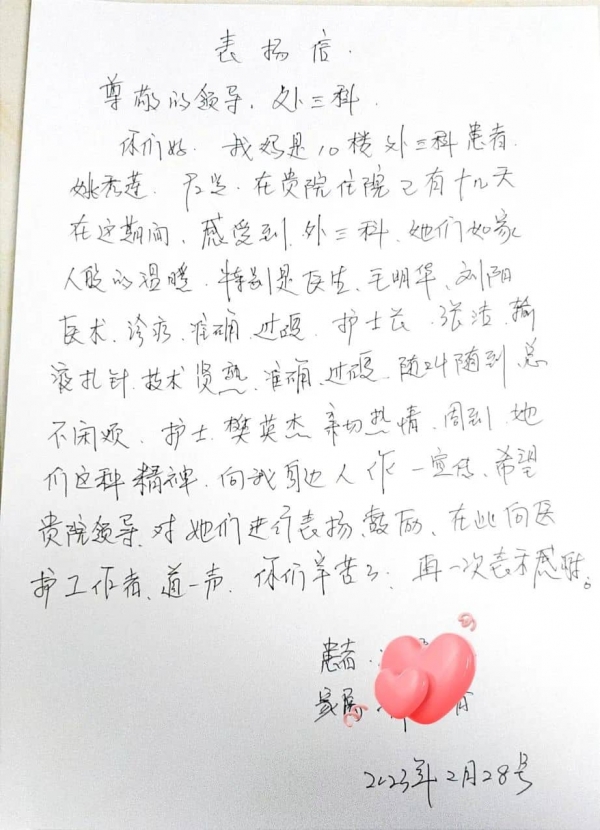 表扬信.
尊敬的领导、外三科.
你们好. 我妈是10楼外三科患者.
姚秀莲. 在贵院住院已有十几天
在这期间、感受到外三科、她们如家
人般的温暖. 特别是医生、毛明华、刘阳
医术、诊疗、准确、过硬. 护士长、张洁、输
液扎针、技术贤熟、准确、过硬、随叫随到、总
不闲烦、护士、樊英杰、亲切热情、周到、她
们这种精神、向我身边人作一宣传、希望
贵院领导、对她们进行表扬、鼓励、在此向医
护工作者、道一声、你们辛苦了、再一次表示感谢。
患者:
家属:
2023年2月28号